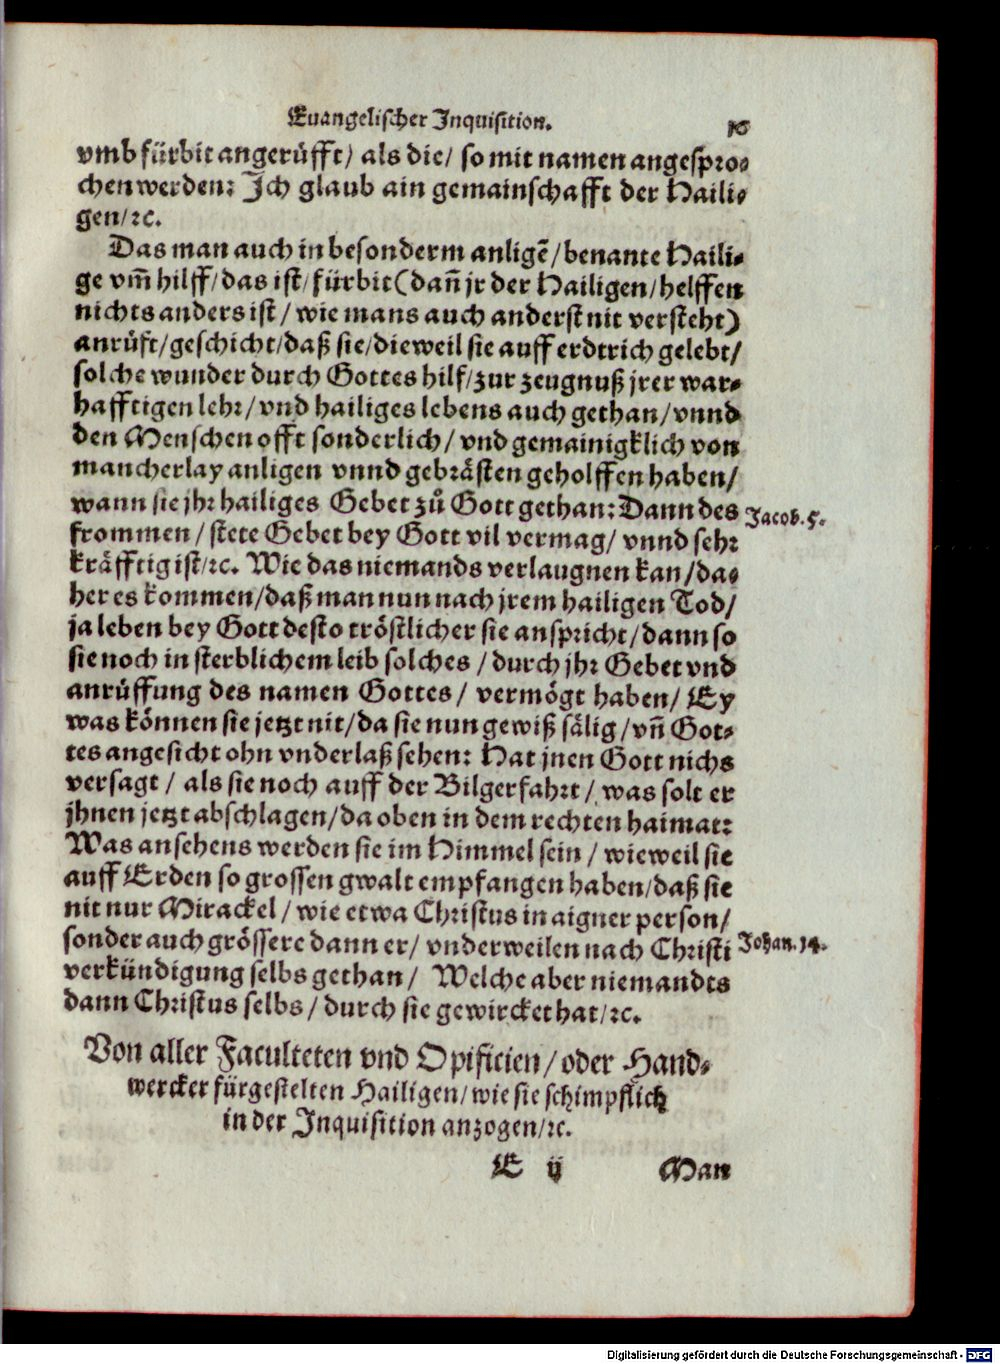 Euangelischer Inquisition.
vmb fürbit angerüfft/ als die/ so mit namen angespro⸗
chen werden: Ich glaub ain gemainschafft der Haili⸗
gen/ꝛc.
Das man auch in besonderm anligē/benante Haili⸗
ge vm̄ hilff/das ist/fürbit(dañ jr der Hailigen/helffen
nichts anders ist/wie mans auch anderst nit versteht)
anrüft/geschicht/daß sie/dieweil sie auff erdtrich gelebt/
solche wunder durch Gottes hilf/zur zeugnuß jrer war⸗
hafftigen lehr/vnd hailiges lebens auch gethan/vnnd
den Menschen offt sonderlich/vnd gemainigklich von
mancherlay anligen vnnd gebrästen geholffen haben/
wann sie jhr hailiges Gebet zů Gott gethan: Dann des
Jacob. 5.
frommen/stete Gebet bey Gott vil vermag/ vnnd sehr
kräfftig ist/ꝛc. Wie das niemands verlaugnen kan/da⸗
her es kommen/daß man nun nach jrem hailigen Tod/
ja leben bey Gott desto tröstlicher sie anspricht/dann so
sie noch in sterblichem leib solches/durch jhr Gebet vnd
anrüffung des namen Gottes/ vermögt haben/ Ey
was können sie jetzt nit/da sie nun gewiß sälig/vñ Got⸗
tes angesicht ohn vnderlaß sehen: Hat jnen Gott nichs
versagt/ als sie noch auff der Bilgerfahrt/ was solt er
jhnen jetzt abschlagen/da oben in dem rechten haimat:
Was ansehens werden sie im Himmel sein/ wieweil sie
auff Erden so grossen gwalt empfangen haben/daß sie
nit nur Mirackel/wie etwa Christus in aigner person/
sonder auch grössere dann er/ vnderweilen nach Christi
Johan. 14.
verkündigung selbs gethan/ Welche aber niemandts
dann Christus selbs/durch sie gewircket hat/ꝛc.
Von aller Faculteten vnd Opificien/oder Hand⸗
wercker fürgestelten Hailigen/wie sie schimpflich
in der Inquisition anzogen/ꝛc.
E ij Man
Digitalisierung gefördert durch die Deutsche Forschungsgemeinschaft - DFG